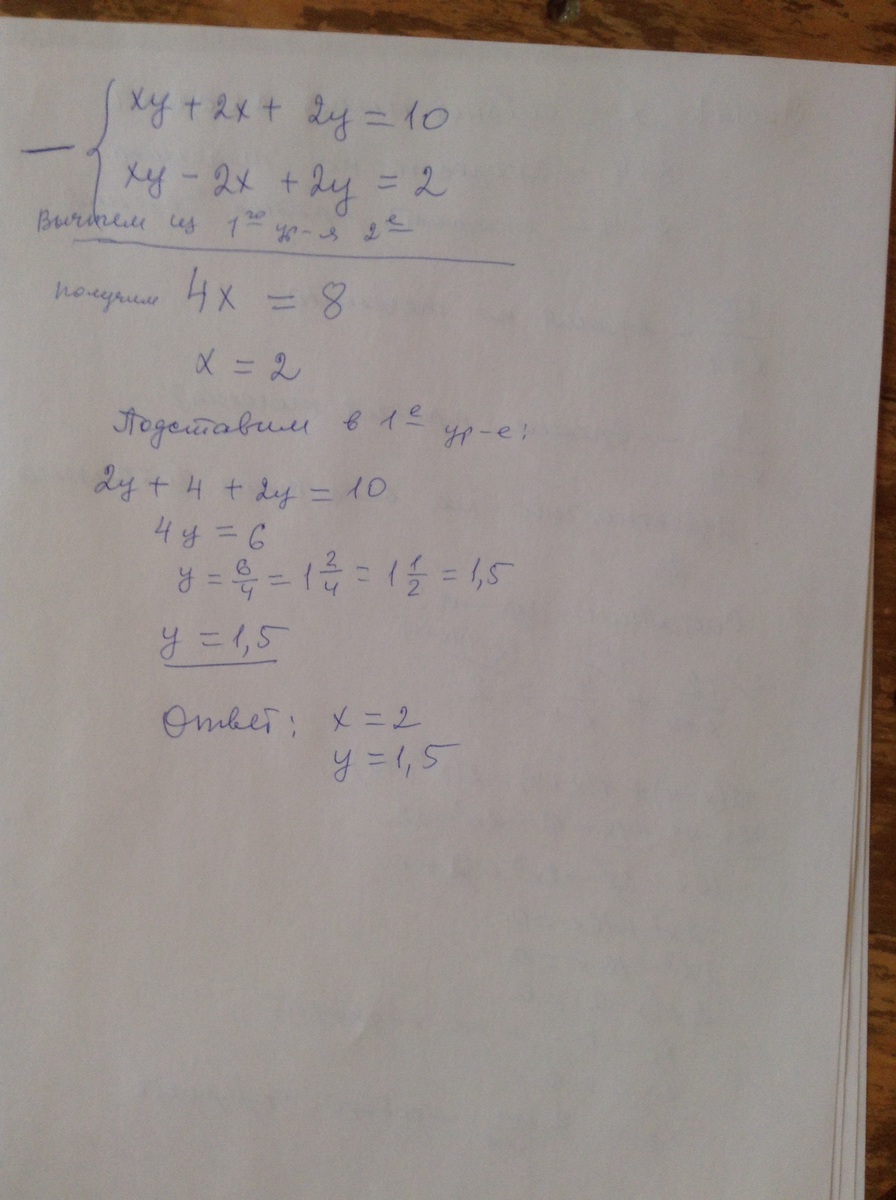 xy + 2x + 2y = 10
— xy - 2x + 2y = 2
Вычтем из 1го ур-я 2е
получим 4x = 8
x = 2
Подставим в 1е ур-е:
2y + 4 + 2y = 10
4y = 6
y = 6/4 = 1 2/4 = 1 1/2 = 1,5
y = 1,5
Ответ: x = 2
y = 1,5